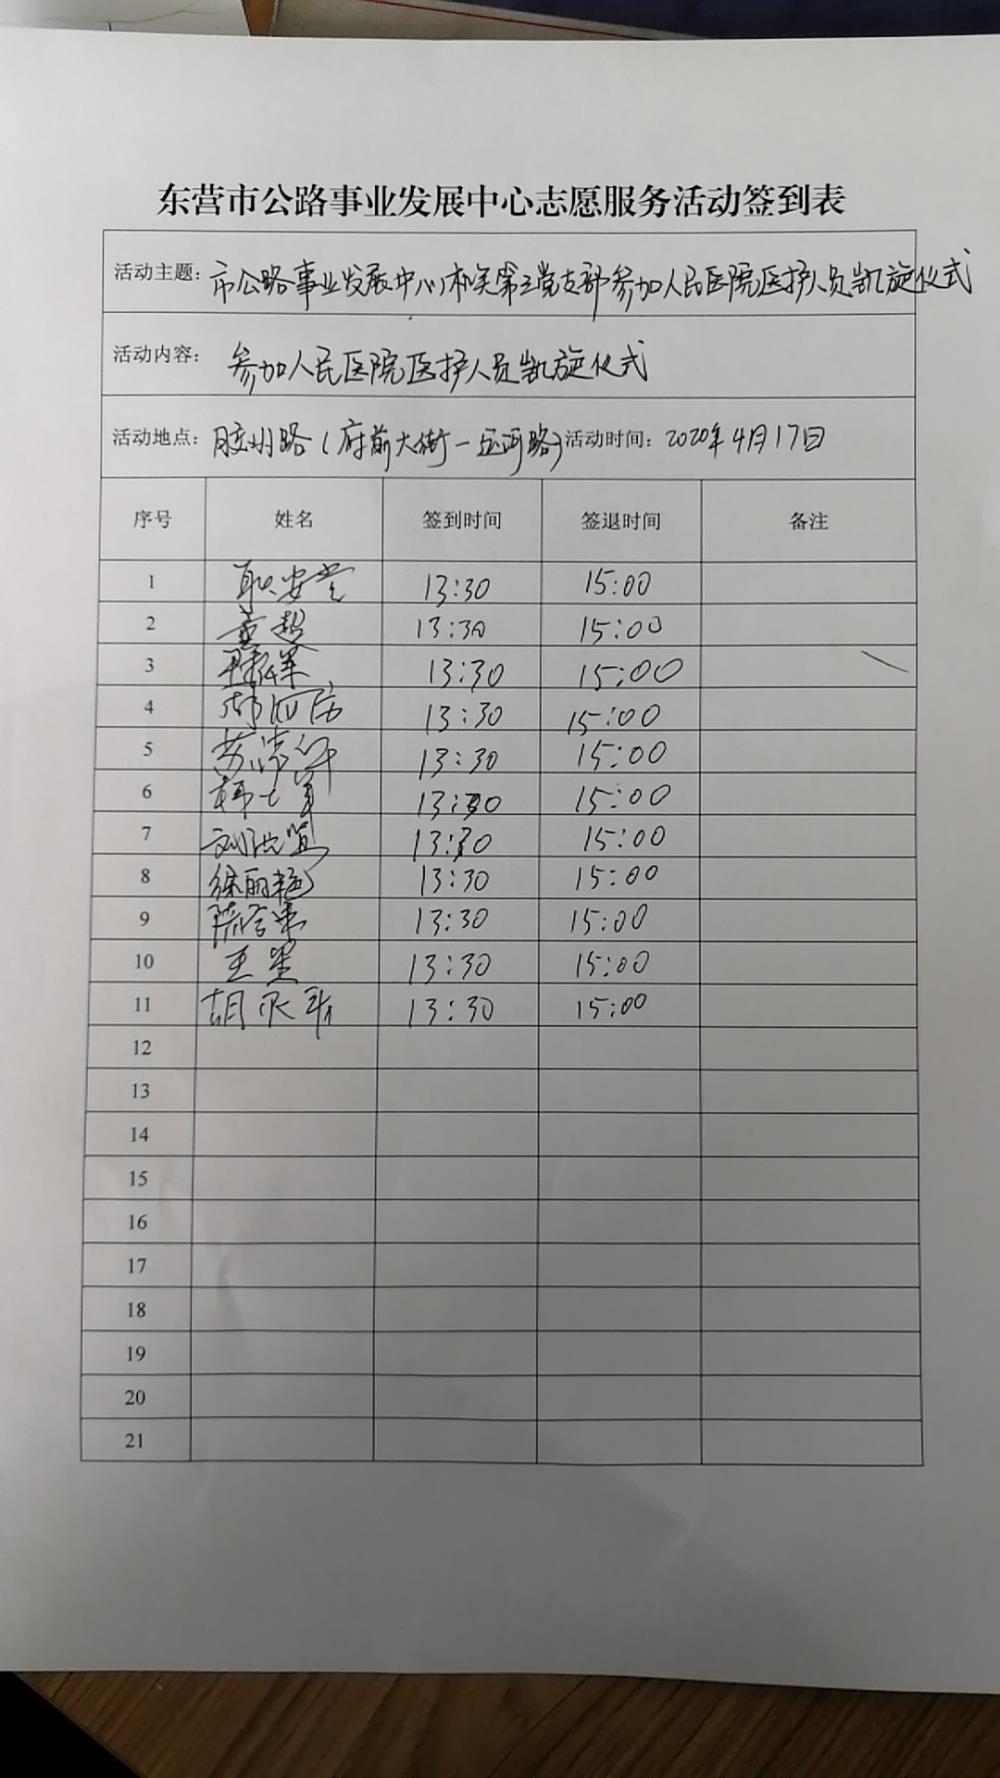 东营市公路事业发展中心志愿服务活动签到表
活动主题：市公路事业发展中心机关第三党支部参加人民医院医护人员凯旋仪式
活动内容：参加人民医院医护人员凯旋仪式
活动地点：胶州路（府前大街－运河路）活动时间：2020年4月17日
序号 姓名 签到时间 签退时间 备注
1 13:30 15:00
2 董超 13:30 15:00
3 13:30 15:00
4 13:30 15:00
5 13:30 15:00
6 13:30 15:00
7 13:30 15:00
8 徐丽艳 13:30 15:00
9 13:30 15:00
10 王星 13:30 15:00
11 13:30 15:00
12
13
14
15
16
17
18
19
20
21